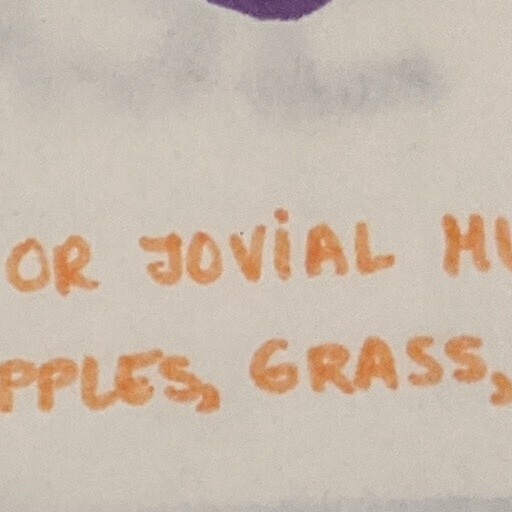 OR JOVIAL
PPLES, GRASS,